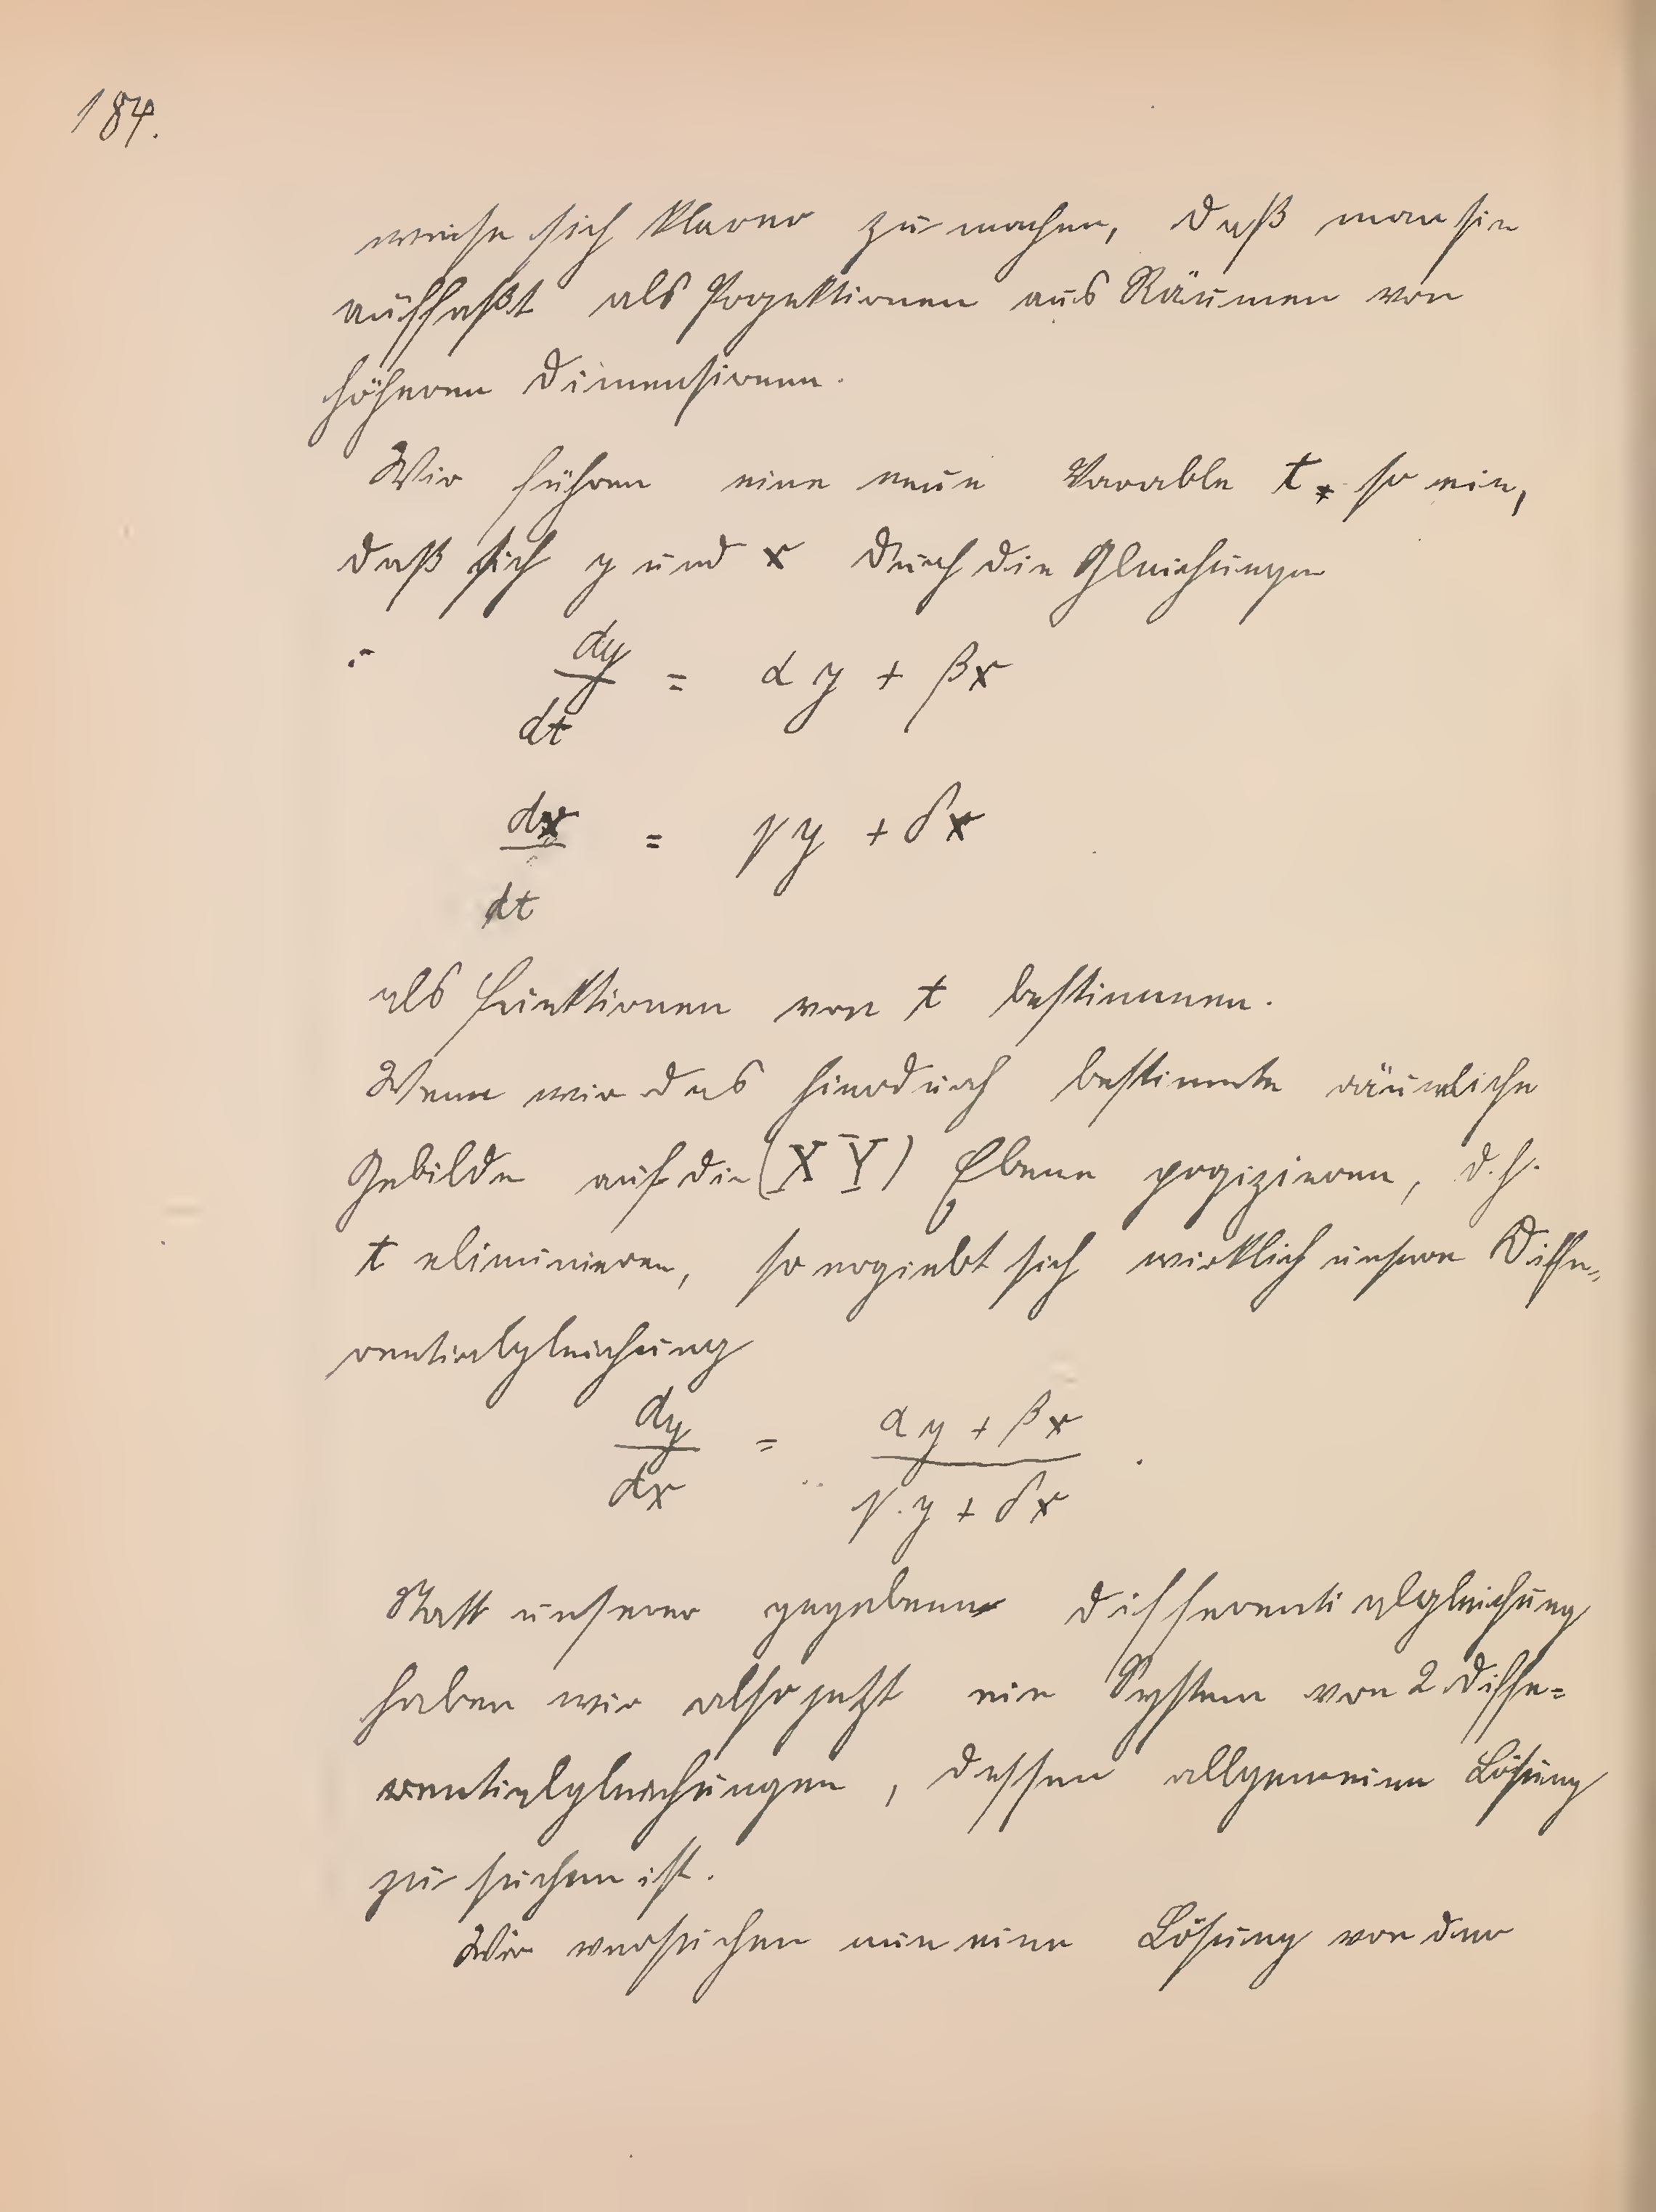 184.
weise sich klarer zu machen, daß man sie
auffaßt als Projektionen aus Räumen von
höheren Dimensionen.
Wir führen eine neue Variable t so ein,
daß sich y und x durch die Gleichungen
dy/dt = αy + βx
dx/dt = γy + δx
als Funktionen von t bestimmen.
Wenn wir das hierdurch bestimmte räumliche
Gebilde auf die (X Y) Ebene projizieren, d.h.
t eliminieren, so ergiebt sich wirklich unsere Diffe=
rentialgleichung
dy/dx = (αy + βx)/(γ.y + δx).
Statt unserer gegebenen Differentialgleichung
haben wir also jetzt ein System von 2 Diffe=
rentialgleichungen, dessen allgemeine Lösung
zu suchen ist.
Wir versuchen nun eine Lösung von der